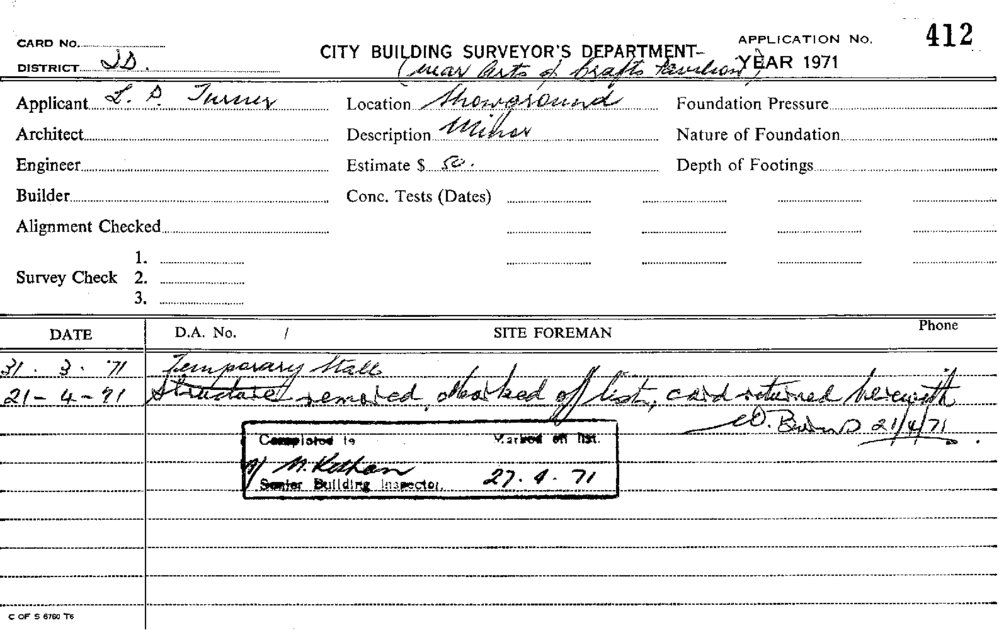 CARD No. APPLICATION No. 412
CITY BUILDING SURVEYOR'S DEPARTMENT–
DISTRICT JD. (near Arts & Crafts Pavilion) YEAR 1971
Applicant L. P. Turner Location Showground Foundation Pressure
Architect Description Minor Nature of Foundation
Engineer Estimate $ 50. Depth of Footings
Builder Conc. Tests (Dates)
Alignment Checked
1.
Survey Check 2.
3.
DATE D.A. No. / SITE FOREMAN Phone
31. 3. 71 Temporary Stall
21-4-71 Structure removed, Marked off list, card returned herewith
21/4/71
Completed is Marked off list.
27. 4. 71
Senior Building Inspector.
C OF S 6760 T6